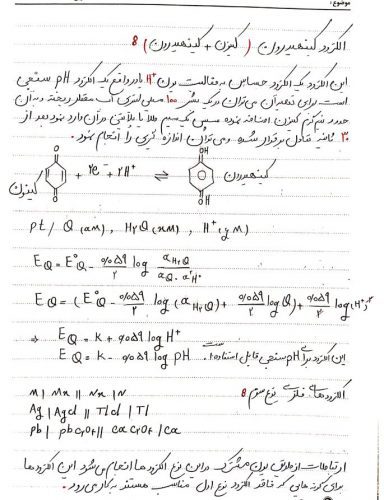 موضوع:
الکترود کینهیدرون (کینزن + کینهیدرون) 8
این الکترود یک الکترود حساس به فعالیت یون H⁺ بوده و در واقع یک الکترود pH سنجی
است. برای تهیه آن می‌توان در یک بشر 100 میلی لیتری آب مقطر ریخته و به آن
حدود نیم گرم کینزن اضافه نموده سپس یک سیم طلا یا پلاتین در آن وارد نمود بعد از
30 ثانیه تعادل برقرار شده و می‌توان اندازه گیری را انجام نمود.
O OH
کینزن + 2e⁻ + 2H⁺ ⇌ کینهیدرون
O OH
pt / Q (aM) , H₂Q (xM) , H⁺ (yM)
E Q = E°Q - 0/059/2 log a H₂Q / a Q . a²H⁺
E Q = (E°Q - 0/059/2 log (a H₂Q) + 0/059/2 log Q) + 0/059/2 log (H⁺)²
⇒ E Q = K + 0/059 log H⁺
E Q = K - 0/059 log PH
این الکترود برای pH سنجی قابل استفاده است.
الکترودهای فلزی نوع سوم 8
M | Mx || Nx | N
Ag | Agcl || Tlcl | Tl
pb | pbCrO₄ || CaCrO₄ | Ca
ارتباطات از طریق یون مشترک در این نوع الکترودها انجام می‌شود این الکترودها
برای گونه هایی که فاقد الکترود نوع اول مناسب هستند بکار می رود.